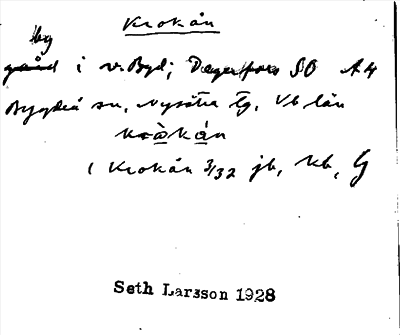 Krokån
by
gård i v. Byd; Degerfors SO A4
Bygdeå sn, Nysätra tg, Vb län
kròkán
( Krokån 3/32 jb, kb, G
Seth Larsson 1928